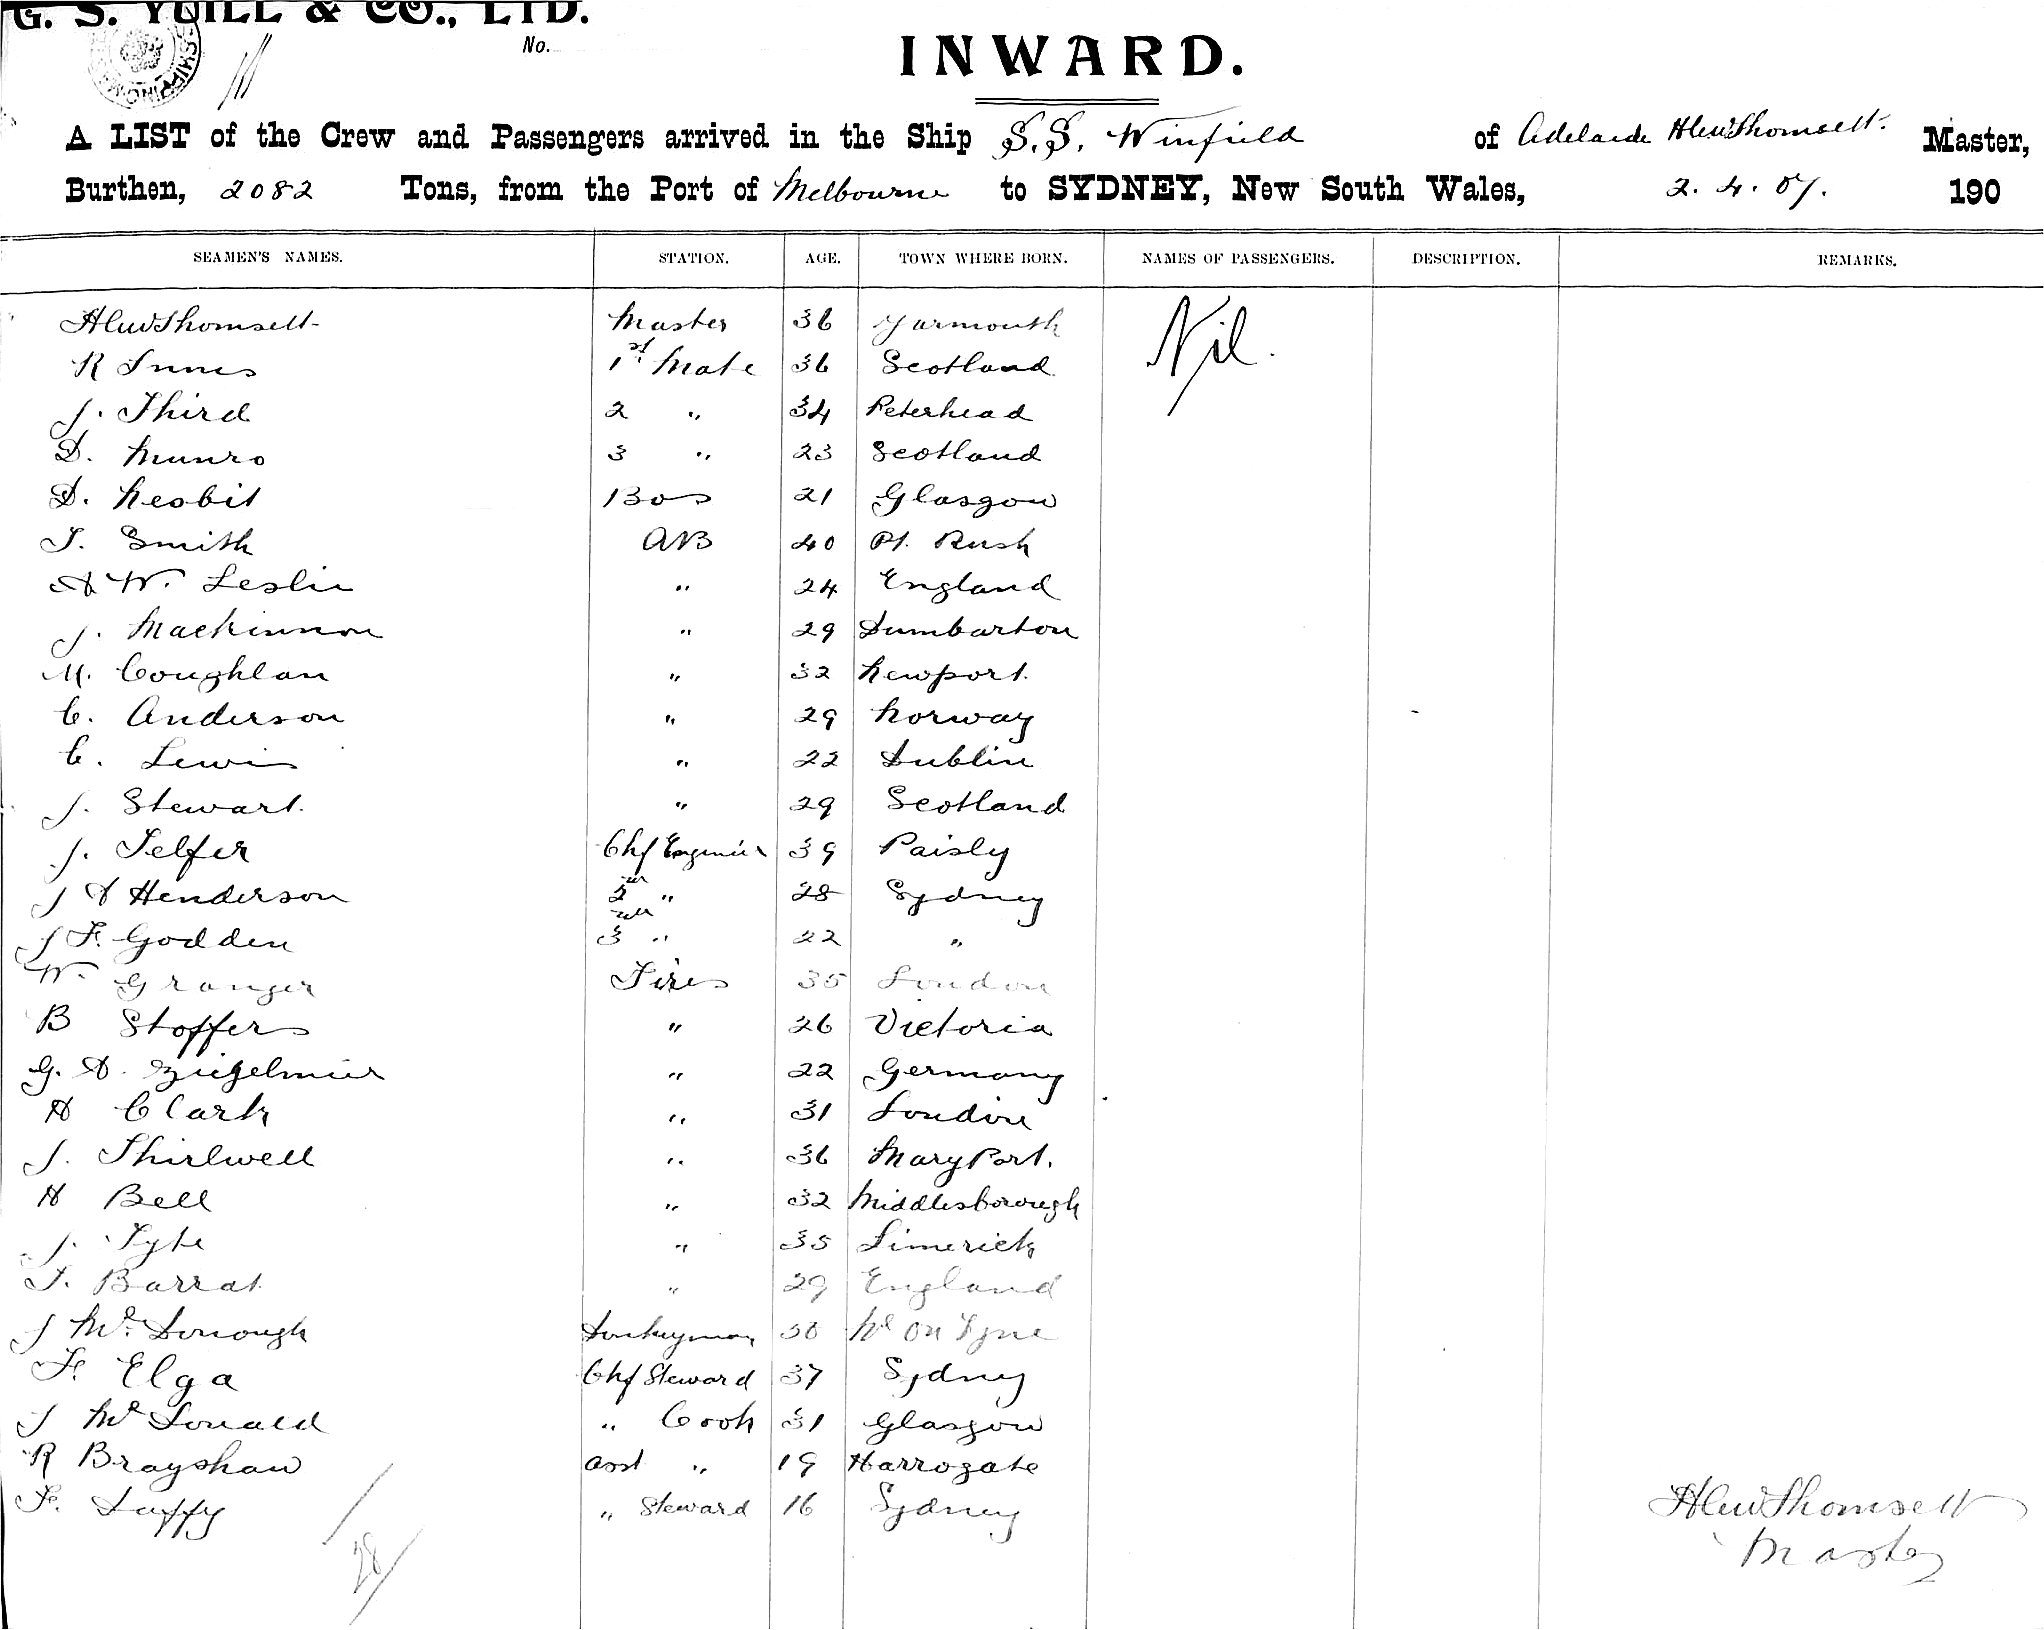 G. S. YUILL & CO., LTD.
No.
INWARD.
A LIST of the Crew and Passengers arrived in the Ship S.S. Winfield of Adelaide Thomsett. Master,
Burthen, 2082 Tons, from the Port of Melbourne to SYDNEY, New South Wales, 2.4.07. 190
SEAMEN'S NAMES. STATION. AGE. TOWN WHERE BORN. NAMES OF PASSENGERS. DESCRIPTION. REMARKS.
Thomsett Master 36 Yarmouth Nil.
R Innes 1st Mate 36 Scotland
J. Third 2 " 34 Peterhead
D. Munro 3 " 23 Scotland
D. Nesbit Bos 21 Glasgow
T. Smith AB 40 Pt. Rush
A W. Leslie " 24 England
J. Mackinnon " 29 Dumbarton
M. Coughlan " 32 Newport.
C. Anderson " 29 Norway
C. Lewis " 22 Dublin
J. Stewart. " 29 Scotland
J. Telfer Chf Engineer 39 Paisly
J A Henderson 2 " 28 Sydney
J F. Godden 3 " 22 "
W. Granger Fires 35 London
B Stoffers " 26 Victoria
G. A. Ziegelmier " 22 Germany
A Clark " 31 London
J. Thirlwell " 36 MaryPort.
H Bell " 32 Middlesborough
J. Tyte " 35 Limerick
T. Barrat " 29 England
J McDonough Donkeyman 30 N on Tyne
F. Elga Chf Steward 37 Sydney
J McDonald " Cook 31 Glasgow
R Brayshaw asst " 19 Harrogate
F. Duffy " Steward 16 Sydney
28
Thomsett
Master